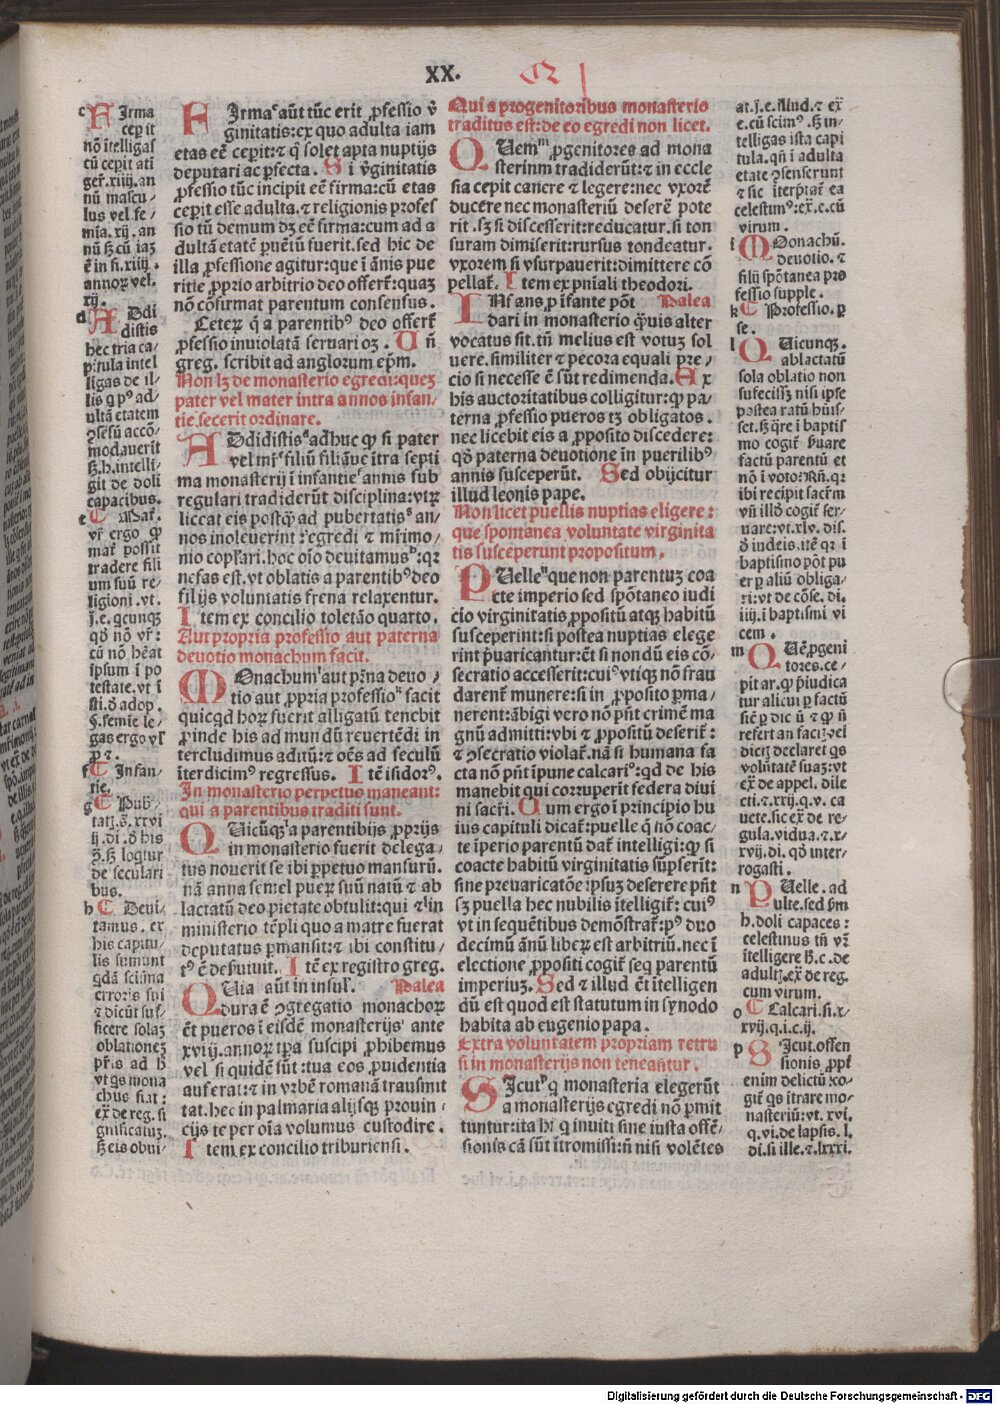 XX.
c Firma
cepit
nō ītelligas
tū cepit ati
ger.xiiij.an
nū mascu-
lus vel fe-
mia.xij.an
nū ꝫ cū iaꝫ
ē in fi.xiiij.
annoꝝ vel.
xij.
d Addi
distis
hec tria ca-
pitula intel
ligas de il-
lis q pꝰ ad-
ultā etatem
ꝯsēsū accō-
modauerit
ꝫ.h.intelli-
git de doli
capacibus.
e Mat̄.
vr̄ ergo ꝙ
mat̄ possit
tradere fili
um suū re-
ligioni.vt.
j.e.qcunqꝫ
qḋ nō vr̄:
cū nō hēat
ipsum ī po
testate.vt ī
sti.ḋ adop.
§.femie le-
gas ergo vl̓
ꝑ ⁊.
f Infan-
tie.
g Pub-
tatꝭ.s̄.xxvi
ij.di.ḋ his
ꝫ.ꝫ loqtur
de seculari
bus.
h Deui-
tamus.ex
his capitu-
lis sumunt
qdā sciāma
erroris sui
⁊ dicūt suf-
ficere solaꝫ
oblationeꝫ
pr̄is ad h̄
vt qs mona
chus fiat:
ex̄ de reg.si
gnificatuꝫ.
ꝫ eis obui-
Firmaᶜ aūt tūc erit ꝓfessio v̄
ginitatis:ex quo adulta iam
etas eē cepit:⁊ q̄ solet apta nuptijs
deputari ac ꝑfecta. Si v̄ginitatis
ꝓfessio tūc incipit eē firma:cū etas
cepit esse adulta.⁊ religionis profes
sio tū demum dꝫ eē firma:cum ad a
dultā etatē puētū fuerit.sed hic de
illa ꝓfessione agitur:que ī ānis pue
ritie ꝓprio arbitrio deo offert̄:quaꝫ
nō cōfirmat parentum consensus.
Ceteꝝ q̄ a parentibꝰ deo offert̄
ꝓfessio inuiolatā seruari oꝫ. Uñ
greg. scribit ad anglorum ep̄m.
Non lꝫ de monasterio egredi:queꝫ
pater vel mater intra annos infan-
tie.fecerit ordinare.
Addidistisᵈ adhuc ꝙ si pater
vel mr̄ᵉ filiū filiāue ītra septi
ma monasterij ī infantieᶠ annis sub
regulari tradiderūt disciplina:vtꝝ
liceat eis postꝙ̄ ad pubertatisᵍ an-
nos inoleuerint:egredi ⁊ mr̄imo-
nio copl̄ari.hoc oīo deuitamusʰ:qꝛ
nefas est.vt oblatis a parentibꝰ deo
filijs voluntatis frena relaxentur.
Item ex concilio toletāo quarto.
Aut propria professio aut paterna
deuotio monachum facit.
Monachumⁱ aut pr̄na deuo-
tio aut ꝓpria professioᵏ facit
quicqd hoꝝ fuerit alligatū tenebit
ꝓinde his ad mundū reuertēdi in
tercludimus aditū:⁊ oēs ad seculū
īterdicimꝰ regressus. Itē isidorꝰ.
In monasterio perpetuo maneant:
qui a parentibus traditi sunt.
Quicūqꝫˡ a parentibꝰ ꝓprijs
in monasterio fuerit delega-
tus nouerit se ibi ꝑpetuo mansurū.
nā anna semel pueꝝ suū natū ⁊ ab
lactatū deo pietate obtulit:qui ⁊ in
ministerio tēpli quo a matre fuerat
deputatus ꝑmansit:⁊ ibi constitu-
tꝰ ē deseruiuit. Itē ex registro greg.
Quia aūt in insul̓. Palea
dura ē ꝯgregatio monachoꝝ
ēt pueros ī eisdē monasterijs ante
xviij.annoꝝ tꝑa suscipi ꝓhibemus
vel si quidē sūt:tua eos ꝓuidentia
auferat:⁊ in vrbē romanā transmit
tat.hec in palmaria alijsqꝫ prouin-
cijs te per oīa volumus custodire.
Item.ex concilio triburiensi.
Qui a progenitoribus monasterio
traditus est:de eo egredi non licet.
Quemᵐ ꝓgenitores ad mona
steriū tradiderūt:⁊ in eccle
sia cepit canere ⁊ legere:nec vxorē
ducere nec monasteriū deserē pote
rit.sꝫ si discesserit:reducatur.si ton
suram dimiserit:rursus tondeatur.
vxorem si vsurpauerit:dimittere cō
pellat̄. Item ex pniali theodori.
Infans ꝓ īfante pōt Palea
dari in monasterio ꝙuis alter
vocatus sit.tn̄ melius est votuꝫ sol
uere.similiter ⁊ pecora equali pre-
cio si necesse ē sūt redimenda. Ex
his auctoritatibus colligitur:ꝙ pa-
terna ꝓfessio pueros tꝫ obligatos.
nec licebit eis a ꝓposito discedere:
qḋ paterna deuotione īn puerilibꝰ
annis susceperūt. Sed obijcitur
illud leonis pape.
Non licet puellis nuptias eligere:
que spontanea voluntate virginita
tis susceperunt propositum.
Puelleⁿ que non parentuꝫ coa
cte imperio sed spōtaneo iudi
cio virginitatis ꝓpositū atqꝫ habitū
susceperint:si postea nuptias elege
rint ꝑuaricantur:ēt si nondū eis cō-
secratio accesserit:cuiꝰ vtiqꝫ nō frau
darent̄ munere:si in ꝓposito ꝑma-
nerent:ābigi vero nō pn̄t crimē ma
gnū admitti:vbi ⁊ ꝓpositū deserit̄:
⁊ ꝯsecratio violat̄.nā si humana fa
cta nō pn̄t īpune calcariᵒ:qd de his
manebit qui corruperit federa diui
ni sacr̄i. Cum ergo ī principio hu
ius capituli dicat̄:puelle q̄ nō coac-
te īperio parentū dat̄ intelligi:ꝙ si
coacte habitū virginitatis sūpserīt:
sine preuaricatōe ipsuꝫ deserere pn̄t
sꝫ puella hec nubilis ītelligit̄: cuiꝰ
vt in sequētibus demōstrat̄:pꝰ duo
decimū ānū liberꝫ est arbitriū.nec ī
electione ꝓpositi cogit̄ seq parentū
imperiuꝫ. Sed ⁊ illud ēt ītelligen
dū est quod est statutum in synodo
habita ab eugenio papa.
Extra voluntatem propriam retru
si in monasterijs non teneantur.
Sicutᵖ q monasteria elegerūt
a monasterijs egredi nō ꝑmit
tuntur:ita hi q inuiti sine iusta offē-
sionis cā sūt ītromissi:n̄ nisi volētes
at.j.e.illud.⁊ ex̄
e.cū scimꝰ.ꝫ in-
telligas ista capi
tula.qn̄ ī adulta
etate ꝯsenserunt
⁊ sic īterp̄tat̄ ea
celestinꝰ:ex̄.e.cū
virum.
i Monachū.
deuotio.⁊
filij spōtanea pro
fessio supple.
k Professio.p
se.
l Quicunqꝫ.
ablactatū
sola oblatio non
sufecisꝫ nisi ipse
postea ratū hūis-
set.ꝫ qr̄e ī baptis
mo cogit̄ ẜuare
factū parentū et
nō ī voto:Rn̄.qꝛ
ibi recipit sacr̄m
vn̄ illḋ cogit̄ ser-
uare:vt.xlv.dis.
ḋ iudeis.itē qꝛ ī
baptismo pōt pu
er ꝑ aliū obliga-
ri:vt de cōse.di.
iiij.ī baptismi vi
cem.
m Quē.ꝓgeni
tores.ce-
pit ar.ꝙ p̄iudica
tur alicui ꝑ factū
sic ꝑ dic ū ⁊ ꝙ n̄
refert an facī vel
dicis declaret qs
volūtatē suaꝫ:vt
ex̄ de appel.dile
cti.⁊.xxij.q.v.ca
uete.sic ex̄ de re-
gula.vidua.⁊.x-
xvij.di.qḋ inter-
rogasti.
n Puelle.ad
ulte.sed ẜm
h.doli capaces:
celestinus tn̄ vr̄
ītelligere h̄.c.de
adultꝭ.ex̄ de reg.
cum virum.
o Calcari.fi.x-
xvij.q.i.c.ij.
p Sicut.offen
sionis ꝓpt̄
enim delictū co-
git̄ qs ītrare mo-
nasteriū:vt.xvi.
q.vi.de lapsis.l.
di.si ille.⁊.lxxxi.
Digitalisierung gefördert durch die Deutsche Forschungsgemeinschaft - DFG